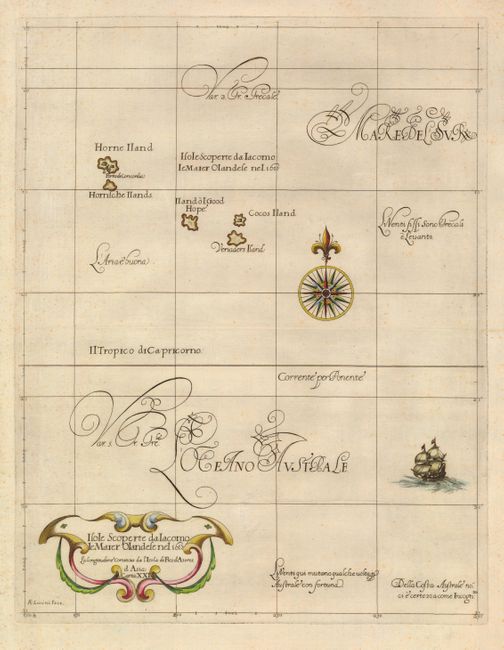 Var. 2. Gr. Grecale.
MARE DEL SVR
Horne Iland
Isole Scoperte da Iacomo
le Maier Olandese nel 16
Hornsche Ilands
Iland of Good
Hope
Cocos Iland
Veraders Iland
L'Aria è buona
Li Venti fissi sono Grecali
e Levante
Il Tropico di Capricorno
Corrente per Ponente
Var. 5. Gr. Gre.
L'OCEANO AVSTRALE
Isole Scoperte da Iacomo
le Maier Olandese nel 16
La longitudine comincia da l'Isola di Pico d'
d'Asores
Carta XXI
Li Venti qui mutano qualche volta
Australe con fortuna
Della Costa Australe no
ci è certezza come